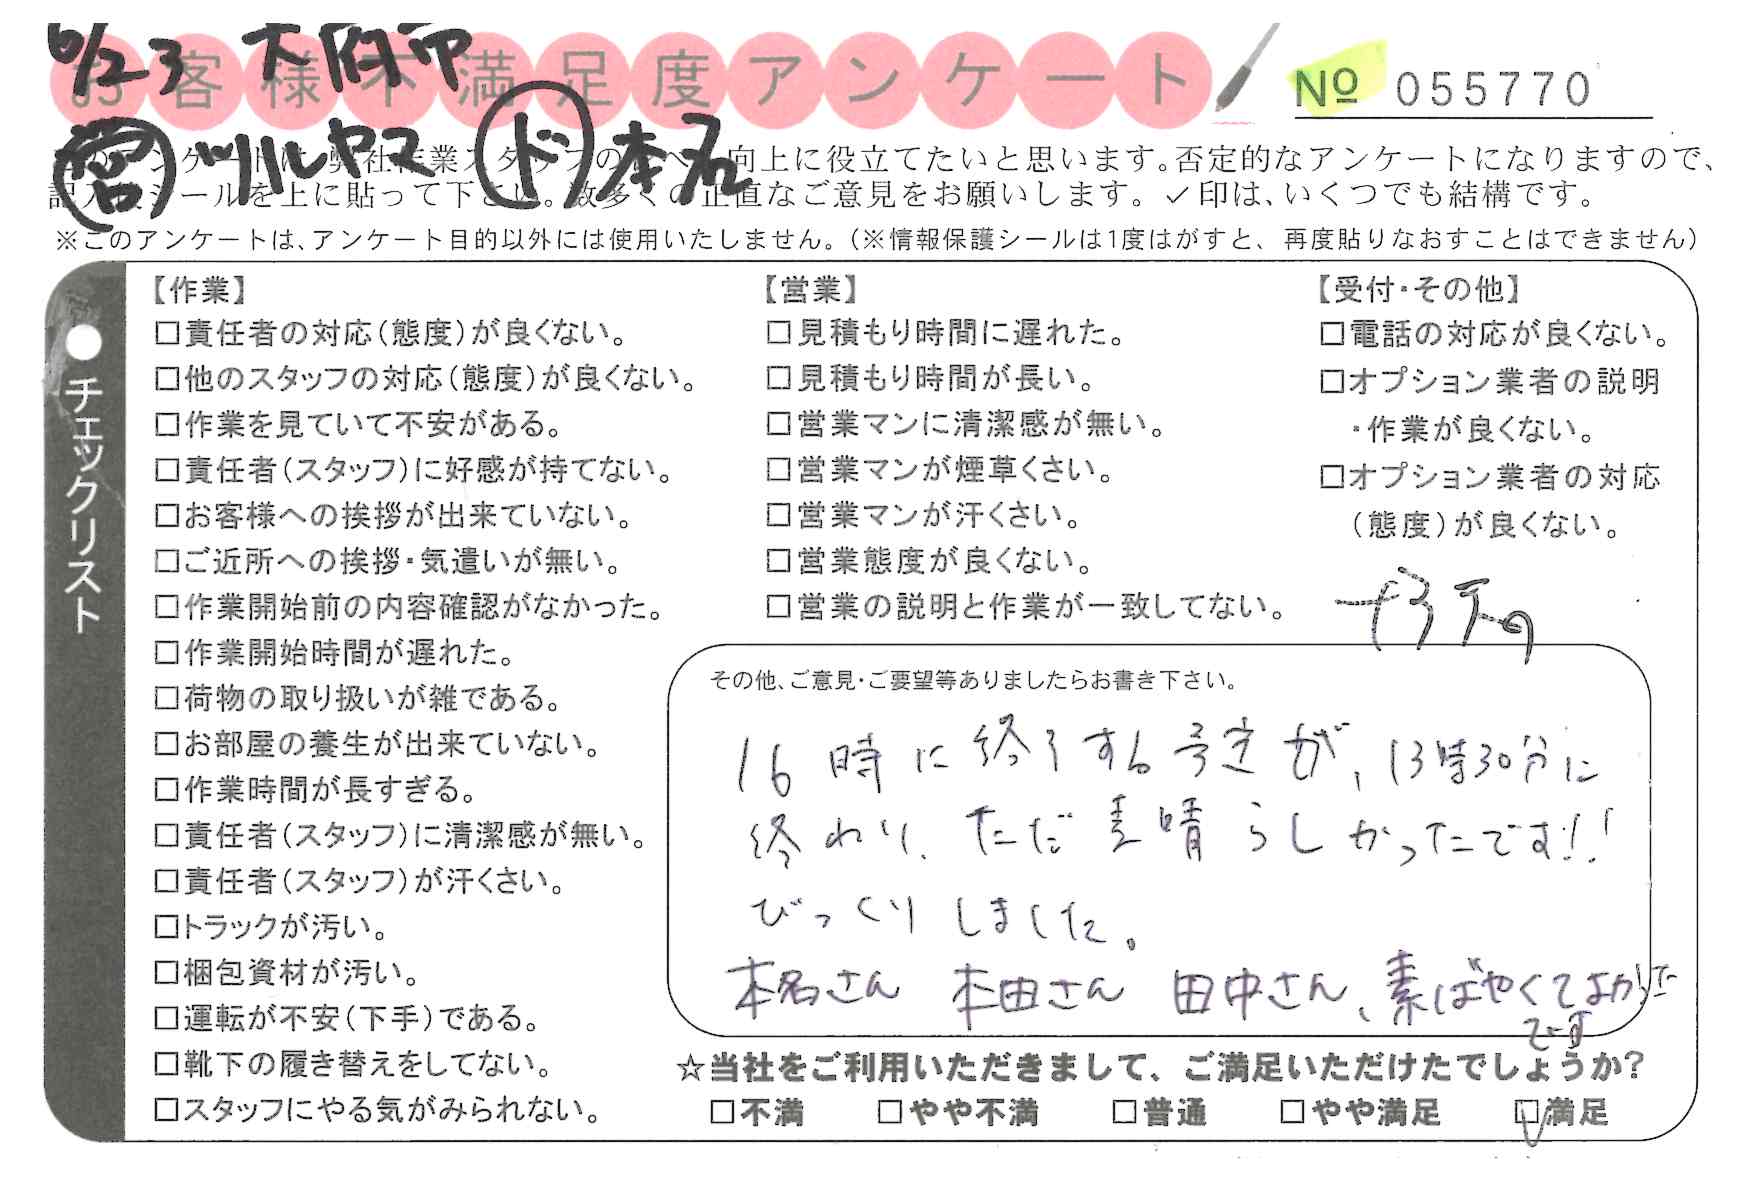 6/23 大府市
お客様不満足度アンケート
№ 055770
営 ツルヤマ ド 本名
このアンケートは、弊社作業スタッフの 向上に役立てたいと思います。否定的なアンケートになりますので、
記入 シールを上に貼って下さい。数多くの正直なご意見をお願いします。✓印は、いくつでも結構です。
※このアンケートは、アンケート目的以外には使用いたしません。(※情報保護シールは1度はがすと、再度貼りなおすことはできません)
●チェックリスト
【作業】
□責任者の対応(態度)が良くない。
□他のスタッフの対応(態度)が良くない。
□作業を見ていて不安がある。
□責任者(スタッフ)に好感が持てない。
□お客様への挨拶が出来ていない。
□ご近所への挨拶・気遣いが無い。
□作業開始前の内容確認がなかった。
□作業開始時間が遅れた。
□荷物の取り扱いが雑である。
□お部屋の養生が出来ていない。
□作業時間が長すぎる。
□責任者(スタッフ)に清潔感が無い。
□責任者(スタッフ)が汗くさい。
□トラックが汚い。
□梱包資材が汚い。
□運転が不安(下手)である。
□靴下の履き替えをしてない。
□スタッフにやる気がみられない。
【営業】
□見積もり時間に遅れた。
□見積もり時間が長い。
□営業マンに清潔感が無い。
□営業マンが煙草くさい。
□営業マンが汗くさい。
□営業態度が良くない。
□営業の説明と作業が一致してない。
【受付・その他】
□電話の対応が良くない。
□オプション業者の説明
・作業が良くない。
□オプション業者の対応
(態度)が良くない。
その他、ご意見・ご要望等ありましたらお書き下さい。
16時に終了する予定が、13時30分に
終わり、ただ素晴らしかったです!!
びっくりしました。
本名さん 本田さん 田中さん、素ばやくてよかった
です
☆当社をご利用いただきまして、ご満足いただけたでしょうか?
□不満 □やや不満 □普通 □やや満足 ☑満足